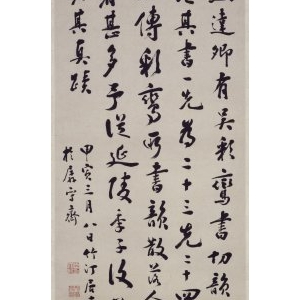 達卿有吴彩鸞書切韻
其書一先為二十三先二十四
傳彩鸞所書韻散落人
者甚多予從延陵季子後
其真蹟
甲寅三月八日竹汀居
於孱守齋